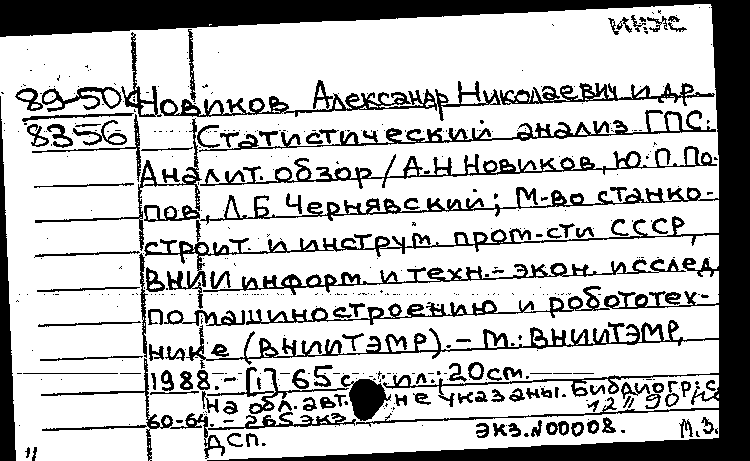 89-50к Новиков, Александр Николаевич и др.
8356 Статистический анализ ГПС:
Аналит. обзор / А.Н. Новиков, Ю.П. По-
пов, Л.Б. Чернявский; М-во станко-
строит. и инструм. пром-сти СССР,
ВНИИ информ. и техн.-экон. исслед.
по машиностроению и робототех-
нике (ВНИИТЭМР). - М.: ВНИИТЭМР,
1988. - [1], 65 с. : ил.; 20 см.
На обл. авт. не указаны. Библиогр.: с.
60-64. - 265 экз.
ДСП. экз. N00008. М.З.